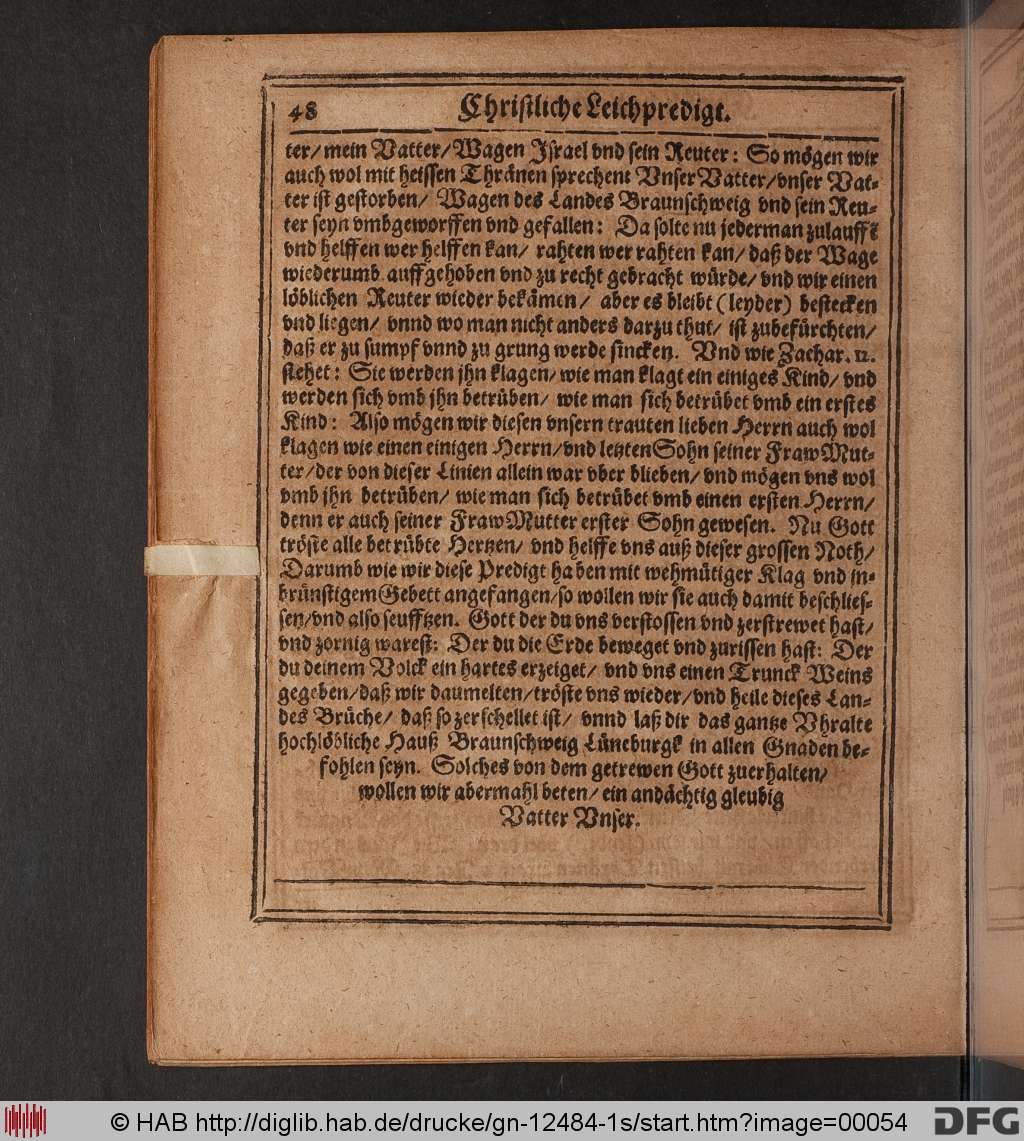 48 Christliche Leichpredigt.
ter/ mein Vatter/ Wagen Israel vnd sein Reuter: So mögen wir
auch wol mit heissen Thränen sprechen: Vnser Vatter/ vnser Vat-
ter ist gestorben/ Wagen des Landes Braunschweig vnd sein Reu-
ter seyn vmbgeworffen vnd gefallen: Da solte nu jederman zulauffē
vnd helffen wer helffen kan/ rahten wer rahten kan/ daß der Wage
wiederumb auffgehoben vnd zu recht gebracht würde/ vnd wir einen
löblichen Reuter wieder bekämen/ aber es bleibt (leyder) bestecken
vnd liegen/ vnnd wo man nicht anders darzu thut/ ist zubefürchten/
daß er zu sumpf vnnd zu grung werde sincken. Vnd wie Zachar. 12.
stehet: Sie werden jhn klagen/ wie man klagt ein einiges Kind/ vnd
werden sich vmb jhn betrüben/ wie man sich betrübet vmb ein erstes
Kind: Also mögen wir diesen vnsern trauten lieben Herrn auch wol
klagen wie einen einigen Herrn/ vnd letzten Sohn seiner Fraw Mut-
ter/ der von dieser Linien allein war vber blieben/ vnd mögen vns wol
vmb jhn betrüben/ wie man sich betrübet vmb einen ersten Herrn/
denn er auch seiner Fraw Mutter erster Sohn gewesen. Nu Gott
tröste alle betrübte Hertzen/ vnd helffe vns auß dieser grossen Noth/
Darumb wie wir diese Predigt haben mit wehmütiger Klag vnd in-
brünstigem Gebett angefangen/ so wollen wir sie auch damit beschlies-
sen/ vnd also seufftzen. Gott der du vns verstossen vnd zerstrewet hast/
vnd zornig warest: Der du die Erde beweget vnd zurissen hast: Der
du deinem Volck ein hartes erzeiget/ vnd vns einen Trunck Weins
gegeben/ daß wir daumelten/ tröste vns wieder/ vnd heile dieses Lan-
des Brüche/ daß so zerschellet ist/ vnnd laß dir das gantze Vhralte
hochlöbliche Hauß Braunschweig Lüneburgk in allen Gnaden be-
fohlen seyn. Solches von dem getrewen Gott zuerhalten/
wollen wir abermahl beten/ ein andächtig gleubig
Vatter Vnser.
© HAB http://diglib.hab.de/drucke/gn-12484-1s/start.htm?image=00054
DFG